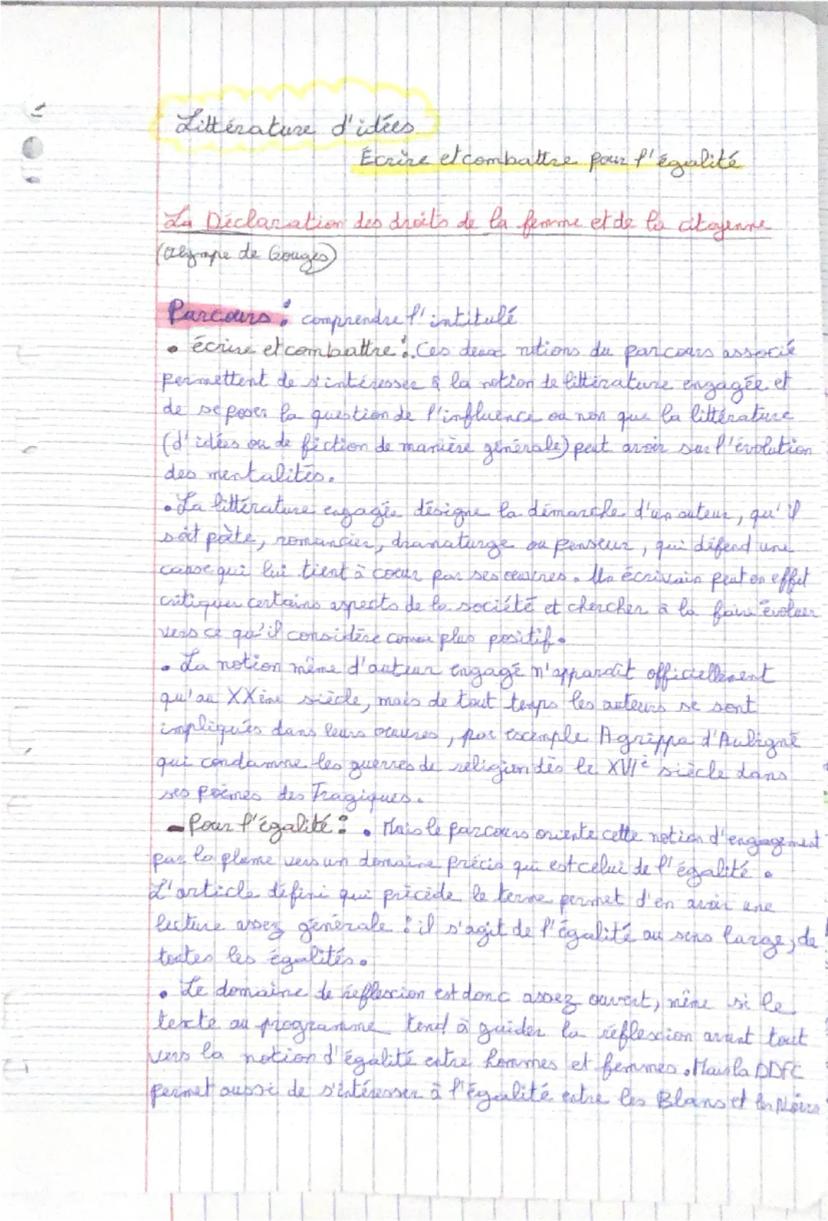 Littérature d'idées
Écrire et combattre pour l'égalité
La Déclaration des droits de la femme et de la citoyenne
(Olympe de Gouges)
Parcours : comprendre l'intitulé
• écrire et combattre : Ces deux notions du parcours associé
permettent de s'intéresser à la notion de littérature engagée et
de se poser la question de l'influence ou non que la littérature
(d'idées ou de fiction de manière générale) peut avoir sur l'évolution
des mentalités.
• La littérature engagée désigne la démarche d'un auteur, qu'il
soit poète, romancier, dramaturge ou penseur, qui défend une
cause qui lui tient à coeur par ses oeuvres. Un écrivain peut en effet
critiquer certains aspects de la société et chercher à la faire évoluer
vers ce qu'il considère comme plus positif.
• La notion même d'auteur engagé n'apparaît officiellement
qu'au XXème siècle, mais de tout temps les auteurs se sont
impliqués dans leurs oeuvres, par exemple Agrippa d'Aubigné
qui condamne les guerres de religion dès le XVIe siècle dans
ses poèmes des Tragiques.
- Pour l'égalité : • Mais le parcours oriente cette notion d'engagement
par la plume vers un domaine précis qui est celui de l'égalité.
L'article défini qui précède le terme permet d'en avoir une
lecture assez générale : il s'agit de l'égalité au sens large, de
toutes les égalités.
• Le domaine de réflexion est donc assez ouvert, même si le
texte au programme tend à guider la réflexion avant tout
vers la notion d'égalité entre hommes et femmes. Mais la DDFC
permet aussi de s'intéresser à l'égalité entre les Blans et les Noirs